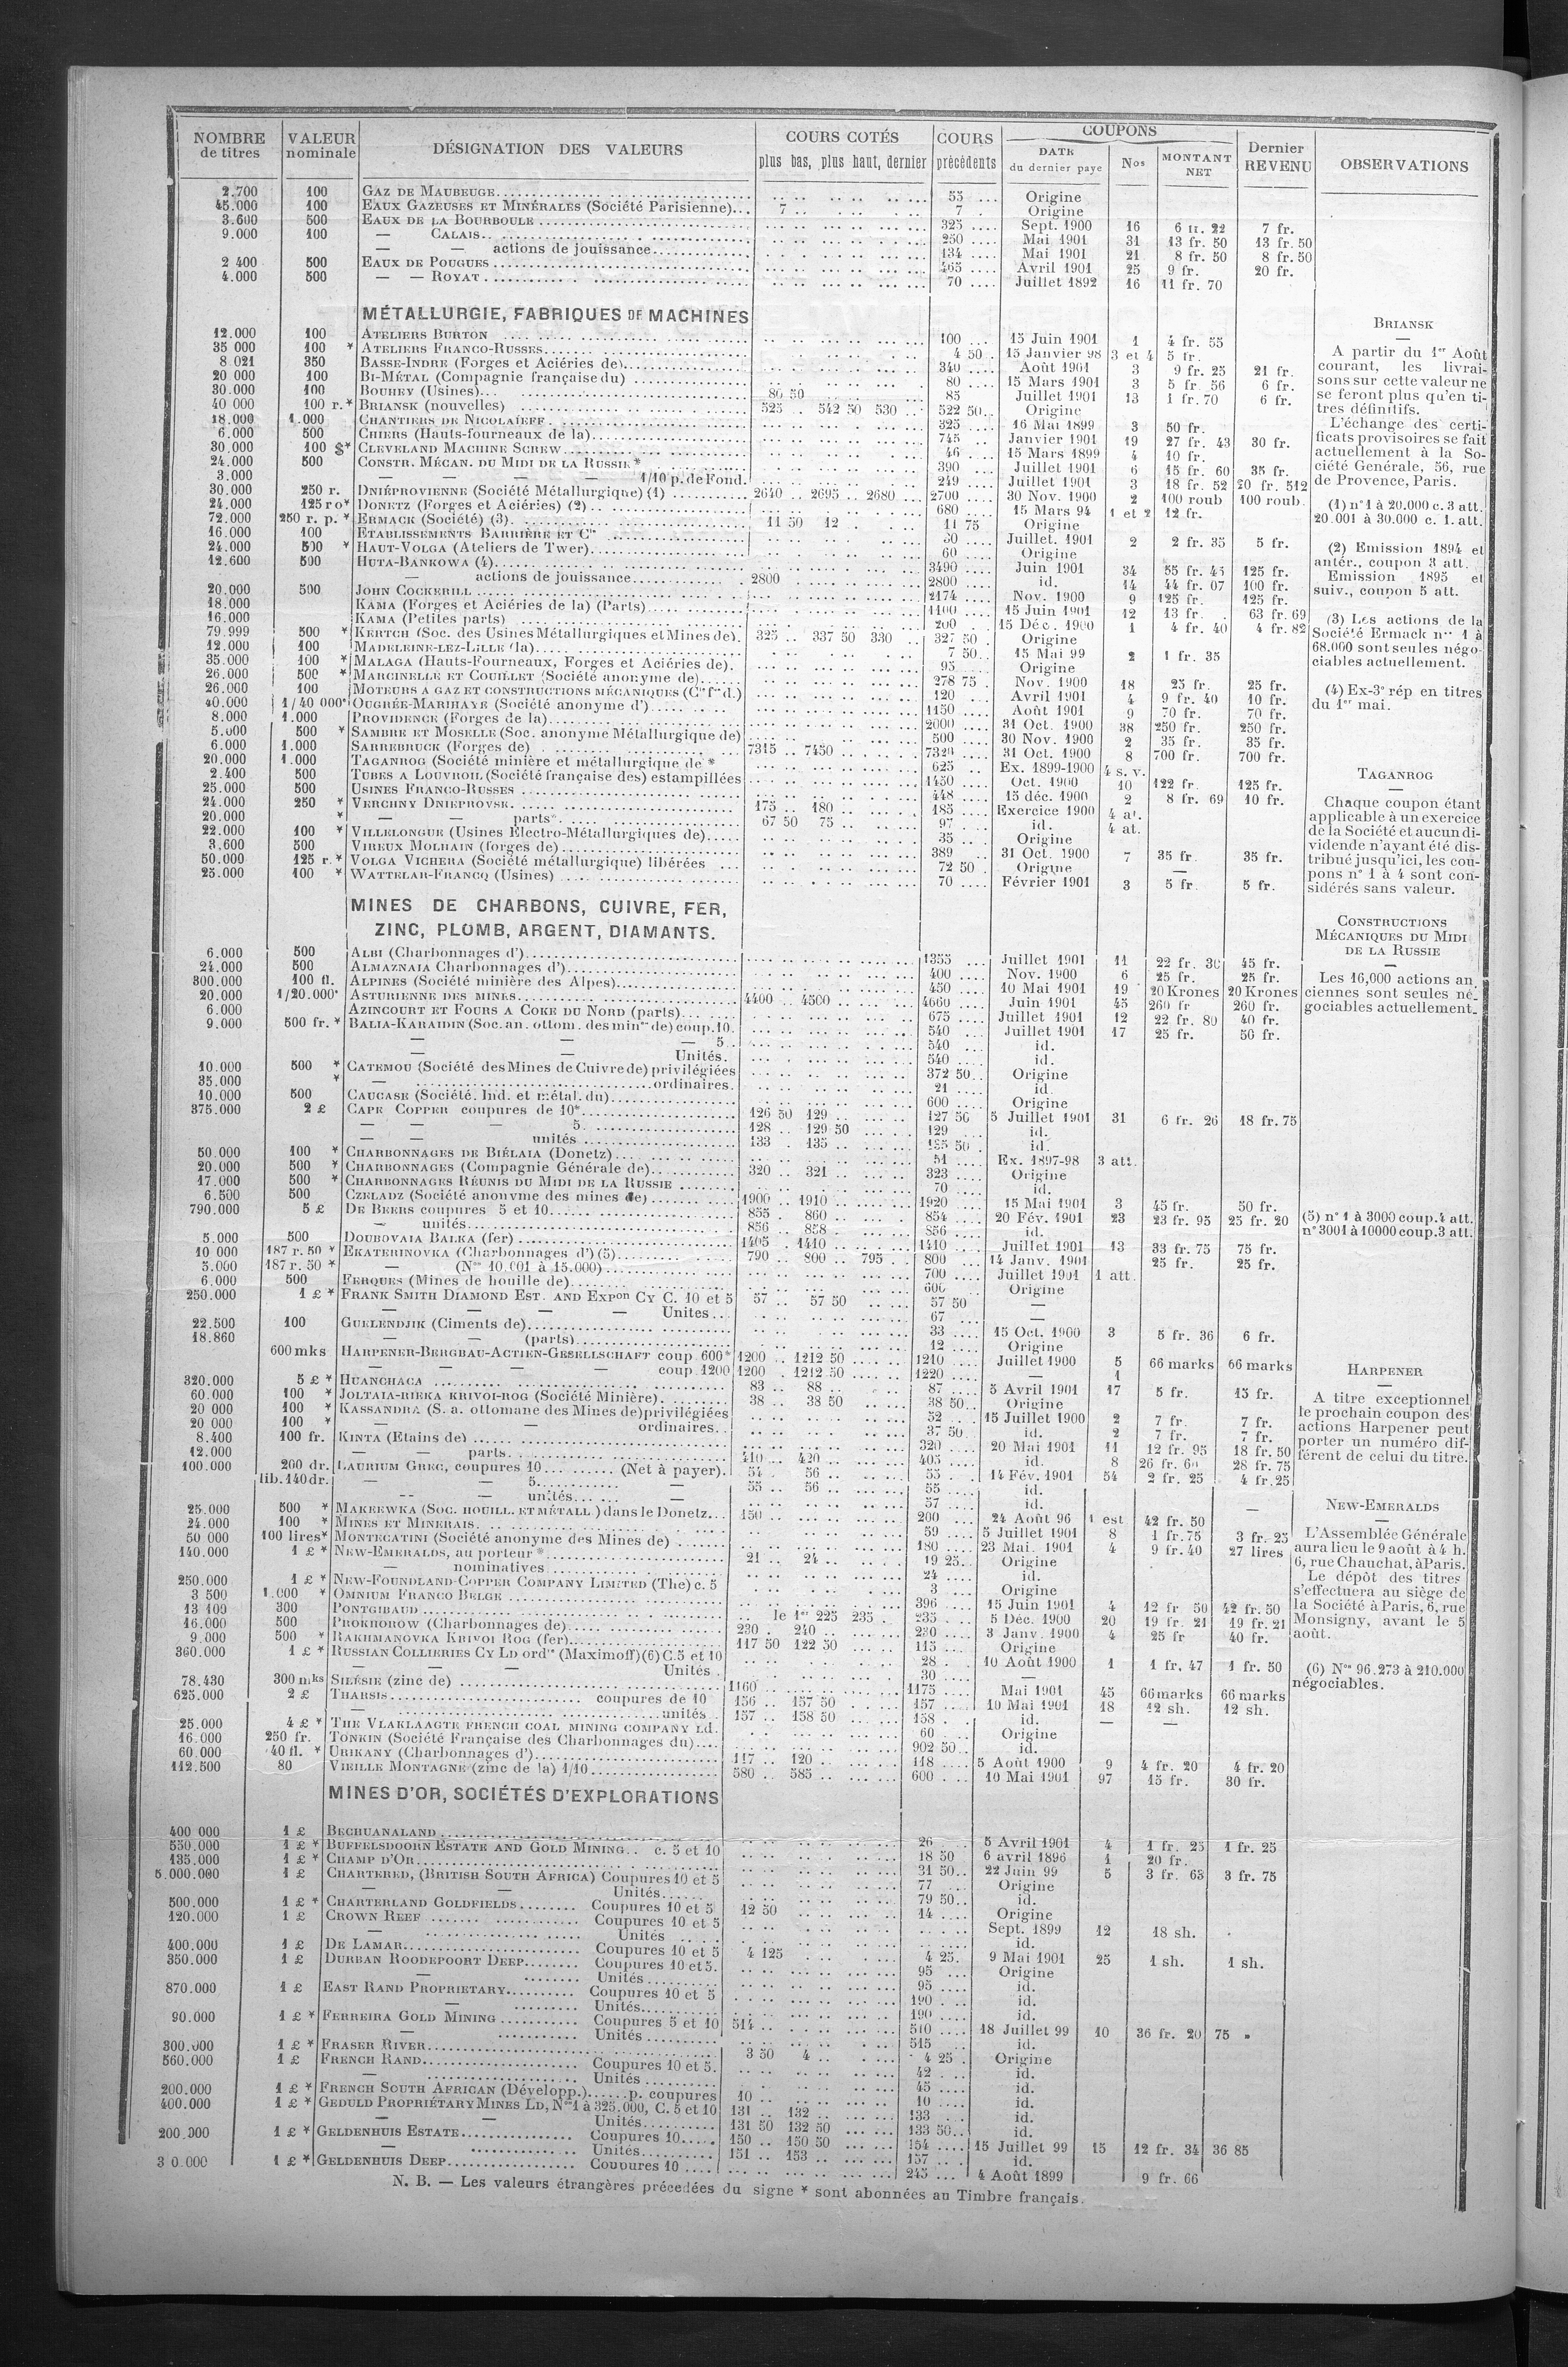 NOMBRE de titres | VALEUR nominale | DÉSIGNATION DES VALEURS | COURS COTÉS plus bas, plus haut, dernier | COURS précédents | COUPONS DATE du dernier payé | Nos | MONTANT NET | Dernier REVENU | OBSERVATIONS
2.700 100 GAZ DE MAUBEUGE 55 Origine
45.000 100 EAUX GAZEUSES ET MINÉRALES (Société Parisienne) 7 7 Origine
3.600 500 EAUX DE LA BOURBOULE 325 Sept. 1900 16 6 fr. 22 7 fr.
9.000 100 — CALAIS 250 Mai 1901 31 13 fr. 50 13 fr. 50
— — actions de jouissance 134 Mai 1901 21 8 fr. 50 8 fr. 50
2 400 500 EAUX DE POUGUES 465 Avril 1901 25 9 fr. 20 fr.
4.000 500 — — ROYAT 70 Juillet 1892 16 11 fr. 70
MÉTALLURGIE, FABRIQUES DE MACHINES
12.000 100 ATELIERS BURTON 100 15 Juin 1901 1 4 fr. 55
35 000 100 * ATELIERS FRANCO-RUSSES 4 50 15 Janvier 98 3 et 4 5 fr.
8 021 350 BASSE-INDRE (Forges et Aciéries de) 340 Août 1901 3 9 fr. 25 21 fr.
20 000 100 BI-MÉTAL (Compagnie française du) 80 15 Mars 1901 3 5 fr. 56 6 fr.
30.000 100 BOUHEY (Usines) 86 50 85 Juillet 1901 13 1 fr. 70 6 fr.
40 000 100 r. * BRIANSK (nouvelles) 525 542 50 530 522 50 Origine
18.000 1.000 CHANTIERS DE NICOLAÏEFF 325 16 Mai 1899 3 50 fr.
6.000 500 CHIERS (Hauts-fourneaux de la) 745 Janvier 1901 19 27 fr. 43 30 fr.
30.000 100 $* CLEVELAND MACHINE SCREW 46 15 Mars 1899 4 10 fr.
24.000 500 CONSTR. MÉCAN. DU MIDI DE LA RUSSIE * 390 Juillet 1901 6 15 fr. 60 35 fr.
3.000 — — — 1/10 p. de Fond. 249 Juillet 1901 3 18 fr. 52 20 fr. 512
30.000 250 r. DNIÉPROVIENNE (Société Métallurgique) (1) 2640 2695 2680 2700 30 Nov. 1900 2 100 roub 100 roub.
24.000 125 r o* DONETZ (Forges et Aciéries) (2) 680 15 Mars 94 1 et 2 12 fr.
72.000 250 r. p. * ERMACK (Société) (3) 11 50 12 11 75 Origine
16.000 100 ETABLISSEMENTS BARRIÈRE ET Cie 30 Juillet. 1901 2 2 fr. 35 5 fr.
24.000 500 * HAUT-VOLGA (Ateliers de Twer) 60 Origine
12.600 500 HUTA-BANKOWA (4) 3490 Juin 1901 34 55 fr. 45 125 fr.
— actions de jouissance 2800 2800 id. 14 44 fr. 07 100 fr.
20.000 500 JOHN COCKERILL 2174 Nov. 1900 9 125 fr. 125 fr.
18.000 KAMA (Forges et Aciéries de la) (Parts) 1100 15 Juin 1901 12 13 fr. 63 fr. 69
16.000 KAMA (Petites parts) 200 15 Déc. 1900 1 4 fr. 40 4 fr. 82
79.999 500 * KERTCH (Soc. des Usines Métallurgiques et Mines de) 325 337 50 330 327 50 Origine
12.000 100 MADELEINE-LEZ-LILLE (la) 7 50 15 Mai 99 2 1 fr. 35
35.000 100 * MALAGA (Hauts-Fourneaux, Forges et Aciéries de) 95 Origine
26.000 500 * MARCINELLE ET COUILLET (Société anonyme de) 278 75 Nov. 1900 18 25 fr. 25 fr.
26.000 100 MOTEURS A GAZ ET CONSTRUCTIONS MÉCANIQUES (Cie fse d.) 120 Avril 1901 4 9 fr. 40 10 fr.
40.000 1/40 000e OUGRÉE-MARIHAYE (Société anonyme d') 1150 Août 1901 9 70 fr. 70 fr.
8.000 1.000 PROVIDENCE (Forges de la) 2000 31 Oct. 1900 38 250 fr. 250 fr.
5.000 500 * SAMBRE ET MOSELLE (Soc. anonyme Métallurgique de) 500 30 Nov. 1900 2 35 fr. 35 fr.
6.000 1.000 SARREBRUCK (Forges de) 7315 7450 7320 31 Oct. 1900 8 700 fr. 700 fr.
20.000 1.000 TAGANROG (Société minière et métallurgique de * 625 Ex. 1899-1900 4 s. v.
2.400 500 TUBES A LOUVROIL (Société française des) estampillées 1450 Oct. 1900 10 122 fr. 125 fr.
25.000 500 USINES FRANCO-RUSSES 448 15 déc. 1900 2 8 fr. 69 10 fr.
24.000 250 * VERCHNY DNIEPROVSK 175 180 185 Exercice 1900 4 at.
20.000 * — — parts 67 50 75 97 id. 4 at.
22.000 100 * VILLELONGUE (Usines Electro-Métallurgiques de) 35 Origine
3.600 500 VIREUX MOLHAIN (forges de) 389 31 Oct. 1900 7 35 fr. 35 fr.
50.000 125 r. * VOLGA VICHERA (Société métallurgique) libérées 72 50 Origine —
25.000 100 * WATTELAR-FRANCQ (Usines) 70 Février 1901 3 5 fr. 5 fr.
MINES DE CHARBONS, CUIVRE, FER,
ZINC, PLOMB, ARGENT, DIAMANTS.
6.000 500 ALBI (Charbonnages d') 1355 Juillet 1901 11 22 fr. 30 45 fr.
24.000 500 ALMAZNAIA Charbonnages d') 400 Nov. 1900 6 25 fr. 25 fr.
300.000 100 fl. ALPINES (Société minière des Alpes) 450 10 Mai 1901 19 20 Krones 20 Krones
20.000 1/20.000e ASTURIENNE DES MINES 4400 4500 4660 Juin 1901 45 260 fr 260 fr.
6.000 AZINCOURT ET FOURS A COKE DU NORD (parts) 675 Juillet 1901 12 22 fr. 80 40 fr.
9.000 500 fr. * BALIA-KARAIDIN (Soc. an. ottom. des mines de) coup. 10. 540 Juillet 1901 17 25 fr. 50 fr.
— — — 5. 540 id.
— — Unités. 540 id.
10.000 500 * CATEMOU (Société des Mines de Cuivre de) privilégiées 372 50 Origine
35.000 * — ordinaires. 21 id.
10.000 500 CAUCASE (Société. Ind. et métal. du) 600 Origine
375.000 2 £ CAPE COPPER coupures de 10* 126 50 129 127 50 5 Juillet 1901 31 6 fr. 26 18 fr. 75
— — — 5. 128 129 50 129 id.
— — unités 133 135 135 50 id.
50.000 100 * CHARBONNAGES DE BIÉLAIA (Donetz) 51 Ex. 1897-98 3 att.
20.000 500 * CHARBONNAGES (Compagnie Générale de) 320 321 323 Origine
17.000 500 * CHARBONNAGES RÉUNIS DU MIDI DE LA RUSSIE 70 id.
6.500 500 CZELADZ (Société anonyme des mines de) 1900 1910 1920 15 Mai 1901 3 45 fr. 50 fr.
790.000 5 £ DE BEERS coupures 5 et 10 855 860 854 20 Fév. 1901 23 23 fr. 95 25 fr. 20
— unités 856 858 856 id.
5.000 500 DOUBOVAIA BALKA (fer) 1405 1410 1410 Juillet 1901 13 33 fr. 75 75 fr.
10 000 187 r. 50 * EKATERINOVKA (Charbonnages d') (5) 790 800 795 800 14 Janv. 1901 25 fr. 25 fr.
5.000 187 r. 50 * — (Nos 10.001 à 15.000) 700 Juillet 1901 1 att.
6.000 500 FERQUES (Mines de houille de) 600 Origine
250.000 1 £ * FRANK SMITH DIAMOND EST. AND EXPon CY C. 10 et 5 57 57 50 57 50 —
— — — — Unites 67 —
22.500 100 GUELENDJIK (Ciments de) 33 15 Oct. 1900 3 5 fr. 36 6 fr.
18.860 — — (parts) 12 Origine
600 mks HARPENER-BERGBAU-ACTIEN-GESELLSCHAFT coup 600* 1200 1212 50 1210 Juillet 1900 5 66 marks 66 marks
— — — — coup. 1200 1200 1212 50 1220 — 1
320.000 5 £ * HUANCHACA 83 88 87 5 Avril 1901 17 5 fr. 15 fr.
60.000 100 * JOLTAIA-RIEKA KRIVOI-ROG (Société Minière) 38 38 50 38 50 Origine
20 000 100 * KASSANDRA (S. a. ottomane des Mines de) privilégiées 52 15 Juillet 1900 2 7 fr. 7 fr.
20 000 100 * — — ordinaires 37 50 id. 2 7 fr. 7 fr.
8.400 100 fr. KINTA (Etains de) 320 20 Mai 1901 11 12 fr. 95 18 fr. 50
12.000 — — parts 410 420 405 id. 8 26 fr. 60 28 fr. 75
100.000 200 dr. LAURIUM GREC, coupures 10 (Net à payer) 54 56 55 14 Fév. 1901 54 2 fr. 25 4 fr. 25
lib. 140 dr. — — 5 — 55 56 55 id.
-- — unités — 57 id.
25.000 500 * MAKEEWKA (SOC. HOUILL. ET MÉTALL.) dans le Donetz 150 200 24 Août 96 1 est 42 fr. 50 —
24.000 100 * MINES ET MINERAIS 59 5 Juillet 1901 8 1 fr. 75 3 fr. 25
50 000 100 lires* MONTECATINI (Société anonyme des Mines de) 180 23 Mai. 1901 4 9 fr. 40 27 lires
140.000 1 £ * NEW-EMERALDS, au porteur * 21 24 19 25 Origine
— nominatives 24 id.
250.000 1 £ * NEW-FOUNDLAND-COPPER COMPANY LIMITED (The) c. 5 3 Origine
3 500 1.000 * OMNIUM FRANCO BELGE 396 15 Juin 1901 4 12 fr 50 42 fr. 50
13 100 300 PONTGIBAUD le 1er 225 235 235 5 Déc. 1900 20 19 fr. 21 19 fr. 21
16.000 500 PROKHOROW (Charbonnages de) 230 240 230 3 Janv. 1900 4 25 fr 40 fr.
9.000 500 * RAKHMANOVKA KRIVOI ROG (fer) 117 50 122 50 115 Origine
360.000 1 £ * RUSSIAN COLLIERIES CY LD ordres (Maximoff) (6) C. 5 et 10 28 10 Août 1900 1 1 fr. 47 1 fr. 50
— — — Unités 30 —
78.430 300 mks SILÉSIE (zinc de) 1160 1175 Mai 1901 45 66 marks 66 marks
625.000 2 £ THARSIS coupures de 10 156 157 50 157 10 Mai 1901 18 12 sh. 12 sh.
unités 157 158 50 158 id. — —
25.000 4 £ * THE VLAKLAAGTE FRENCH COAL MINING COMPANY Ld. 60 Origine
16.000 250 fr. TONKIN (Société Française des Charbonnages du) 902 50 id.
60.000 40 fl. * URIKANY (Charbonnages d') 117 120 118 5 Août 1900 9 4 fr. 20 4 fr. 20
112.500 80 VIEILLE MONTAGNE (zinc de la) 1/10 580 585 600 10 Mai 1901 97 15 fr. 30 fr.
MINES D'OR, SOCIÉTÉS D'EXPLORATIONS
400 000 1 £ BECHUANALAND 26 5 Avril 1901 4 1 fr. 25 1 fr. 25
550.000 1 £ * BUFFELSDOORN ESTATE AND GOLD MINING c. 5 et 10 18 50 6 avril 1896 1 20 fr.
135.000 1 £ * CHAMP D'OR 31 50 22 Juin 99 5 3 fr. 65 3 fr. 75
5.000.000 1 £ CHARTERED, (BRITISH SOUTH AFRICA) Coupures 10 et 5 77 Origine
— Unités 79 50 id.
500.000 1 £ * CHARTERLAND GOLDFIELDS Coupures 10 et 5 12 50 14 Origine
120.000 1 £ CROWN REEF Coupures 10 et 5 Sept. 1899 12 18 sh.
— Unités id.
400.000 1 £ DE LAMAR Coupures 10 et 5 4 125 4 25 9 Mai 1901 25 1 sh. 1 sh.
350.000 1 £ DURBAN ROODEPOORT DEEP Coupures 10 et 5. 95 Origine
— Unités 95 id.
870.000 1 £ EAST RAND PROPRIETARY Coupures 10 et 5 190 id.
— Unités 190 id.
90.000 1 £ * FERREIRA GOLD MINING Coupures 5 et 10 514 510 18 Juillet 99 10 36 fr. 20 75 »
— Unités 515 id.
300.000 1 £ * FRASER RIVER 3 50 4 4 25 Origine
560.000 1 £ FRENCH RAND Coupures 10 et 5. 42 id.
— Unités 45 id.
200.000 1 £ * FRENCH SOUTH AFRICAN (Développ.) p. coupures 10 10 id.
400.000 1 £ * GEDULD PROPRIÉTARY MINES LD, Nos 1 à 325.000, C. 5 et 10 131 132 133 id.
— — Unités 131 50 132 50 133 50 id.
200.000 1 £ * GELDENHUIS ESTATE Coupures 10 150 150 50 154 15 Juillet 99 15 12 fr. 34 36 85
— Unités 151 153 157 id.
3 0.000 1 £ * GELDENHUIS DEEP Coupures 10 245 4 Août 1899 9 fr. 66
BRIANSK
—
A partir du 1er Août
courant, les livrai-
sons sur cette valeur ne
se feront plus qu'en ti-
tres définitifs.
L'échange des certi-
ficats provisoires se fait
actuellement à la So-
ciété Genérale, 56, rue
de Provence, Paris.
(1) n° 1 à 20.000 c. 3 att.
20.001 à 30.000 c. 1. att.
(2) Emission 1894 et
antér., coupon 3 att.
Emission 1895 et
suiv., coupon 5 att.
(3) Les actions de la
Société Ermack nos 1 à
68.000 sont seules négo-
ciables actuellement.
(4) Ex-3e rép en titres
du 1er mai.
TAGANROG
—
Chaque coupon étant
applicable à un exercice
de la Société et aucun di-
vidende n'ayant été dis-
tribué jusqu'ici, les cou-
pons n° 1 à 4 sont con-
sidérés sans valeur.
CONSTRUCTIONS
MÉCANIQUES DU MIDI
DE LA RUSSIE
—
Les 16,000 actions an
ciennes sont seules né-
gociables actuellement.
(5) n° 1 à 3000 coup. 4 att.
n° 3001 à 10000 coup. 3 att.
HARPENER
—
A titre exceptionnel
le prochain coupon des
actions Harpener peut
porter un numéro dif-
férent de celui du titre.
NEW-EMERALDS
—
L'Assemblée Générale
aura lieu le 9 août à 4 h.
6, rue Chauchat, à Paris.
Le dépôt des titres
s'effectuera au siège de
la Société à Paris, 6, rue
Monsigny, avant le 5
août.
(6) Nos 96.273 à 210.000
négociables.
N. B. — Les valeurs étrangères précédées du signe * sont abonnées au Timbre français.